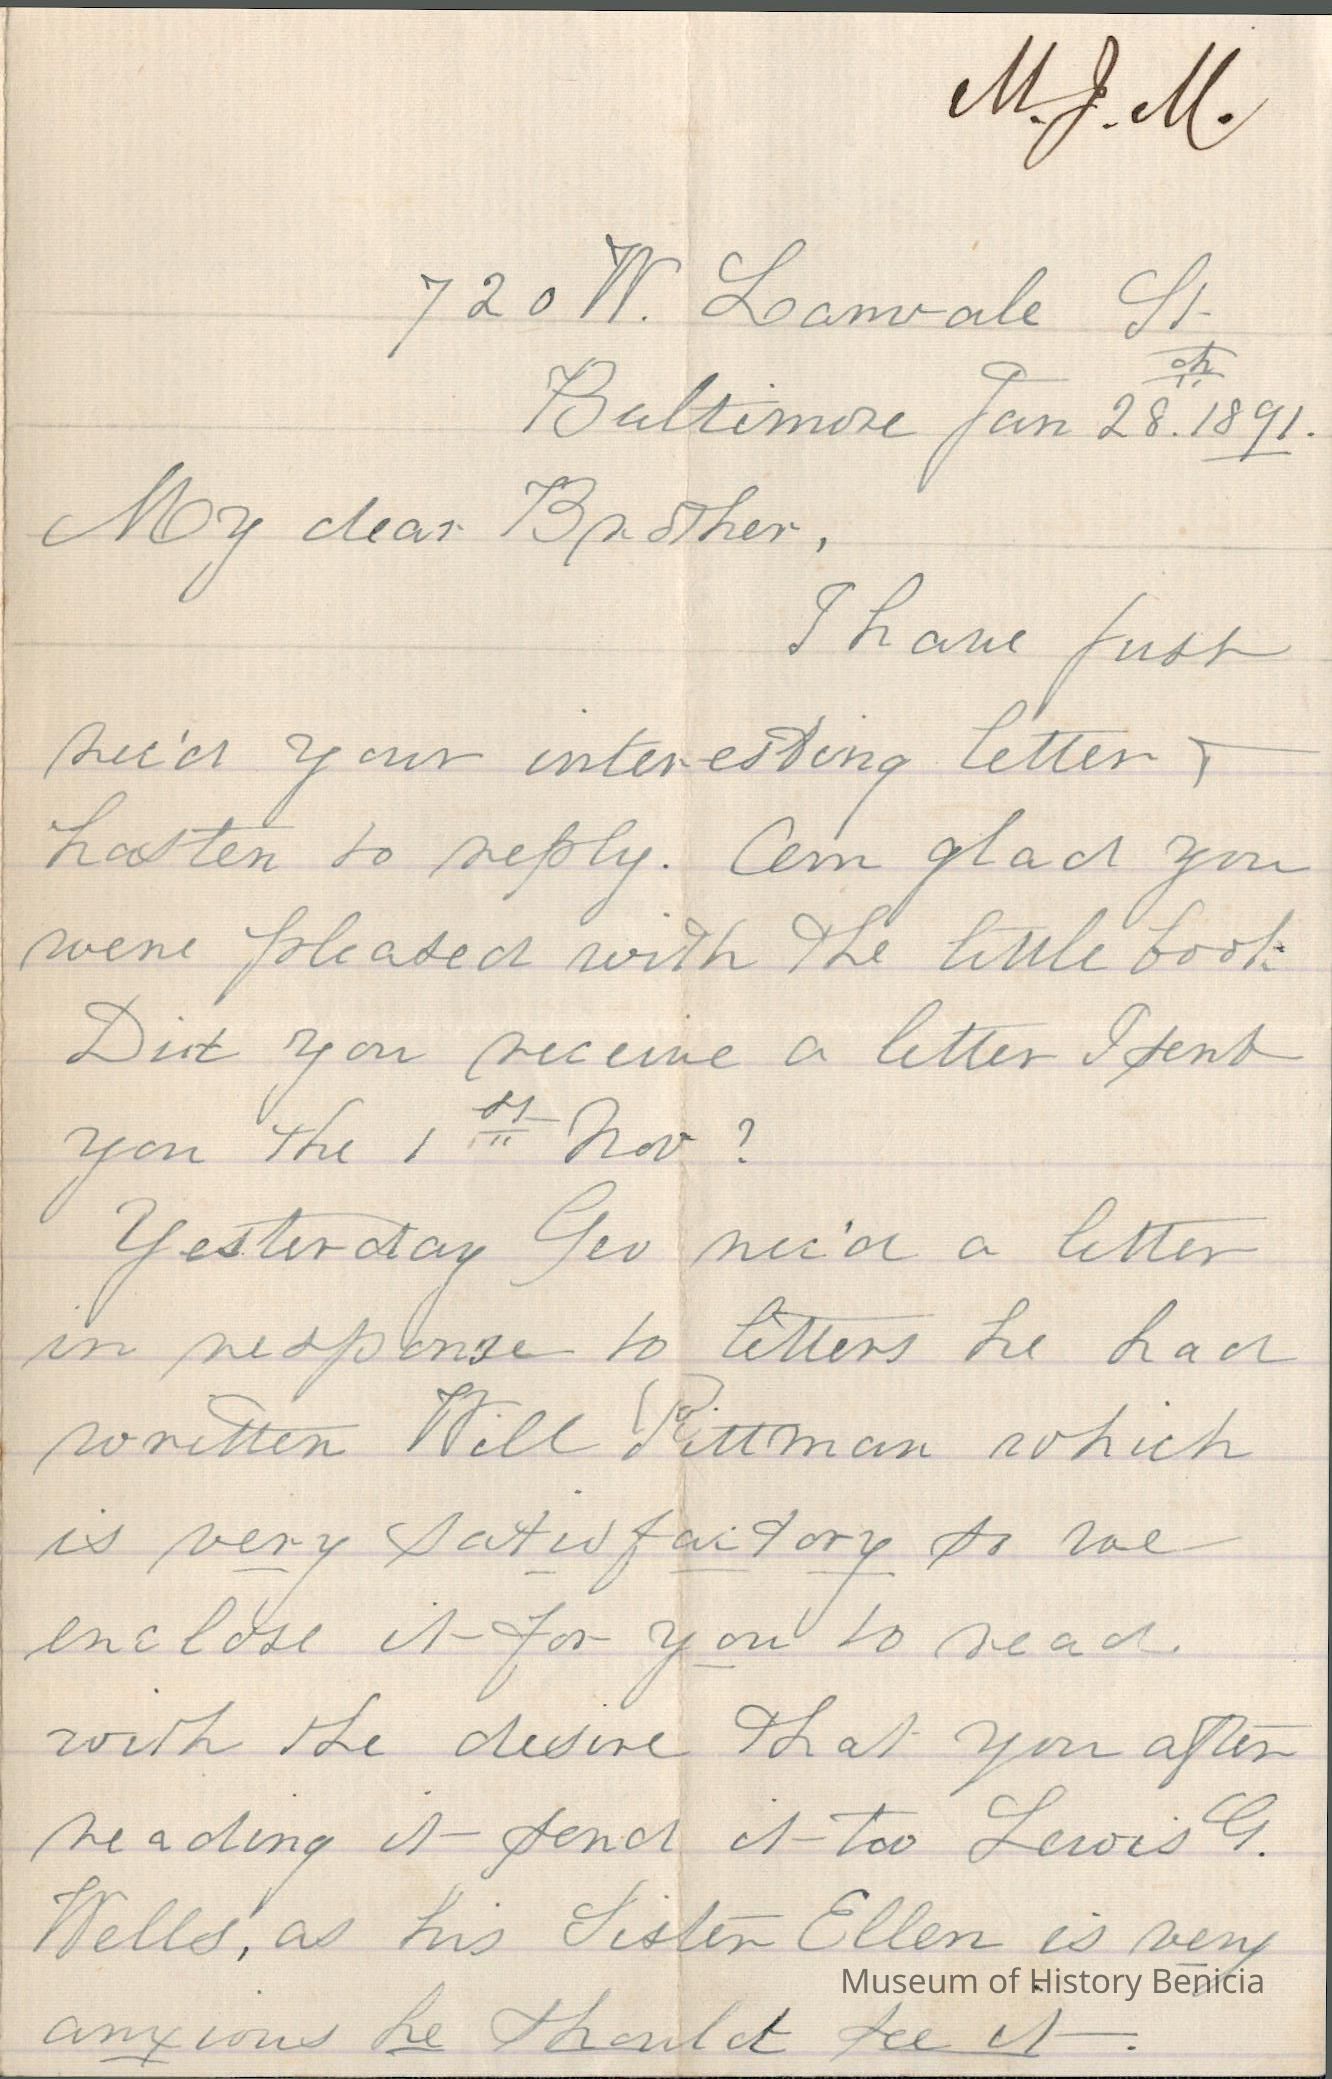 M. J. M.
720 W. Lanvale St
Baltimore Jan 28.th 1891.
My dear Brother,
I have just
rec'd your interesting letter &
hasten to reply. Am glad you
were pleased with the little book
Did you receive a letter I sent
you the 1st Nov?
Yesterday Geo rec'd a letter
in response to letters he had
written Will Pittman which
is very satisfactory so we
enclose it for you to read.
with the desire that you after
reading it send it too Lewis G.
Wells, as his Sister Ellen is very
Museum of History Benicia
anxious he should see it.